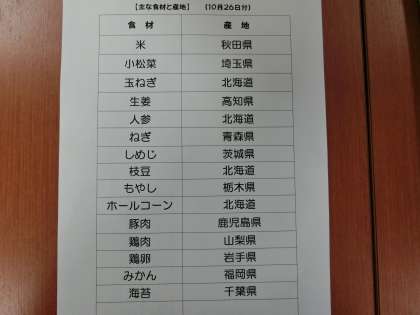 【主な食材と産地】 （10月26日付）
食 材 産 地
米 秋田県
小松菜 埼玉県
玉ねぎ 北海道
生姜 高知県
人参 北海道
ねぎ 青森県
しめじ 茨城県
枝豆 北海道
もやし 栃木県
ホールコーン 北海道
豚肉 鹿児島県
鶏肉 山梨県
鶏卵 岩手県
みかん 福岡県
海苔 千葉県